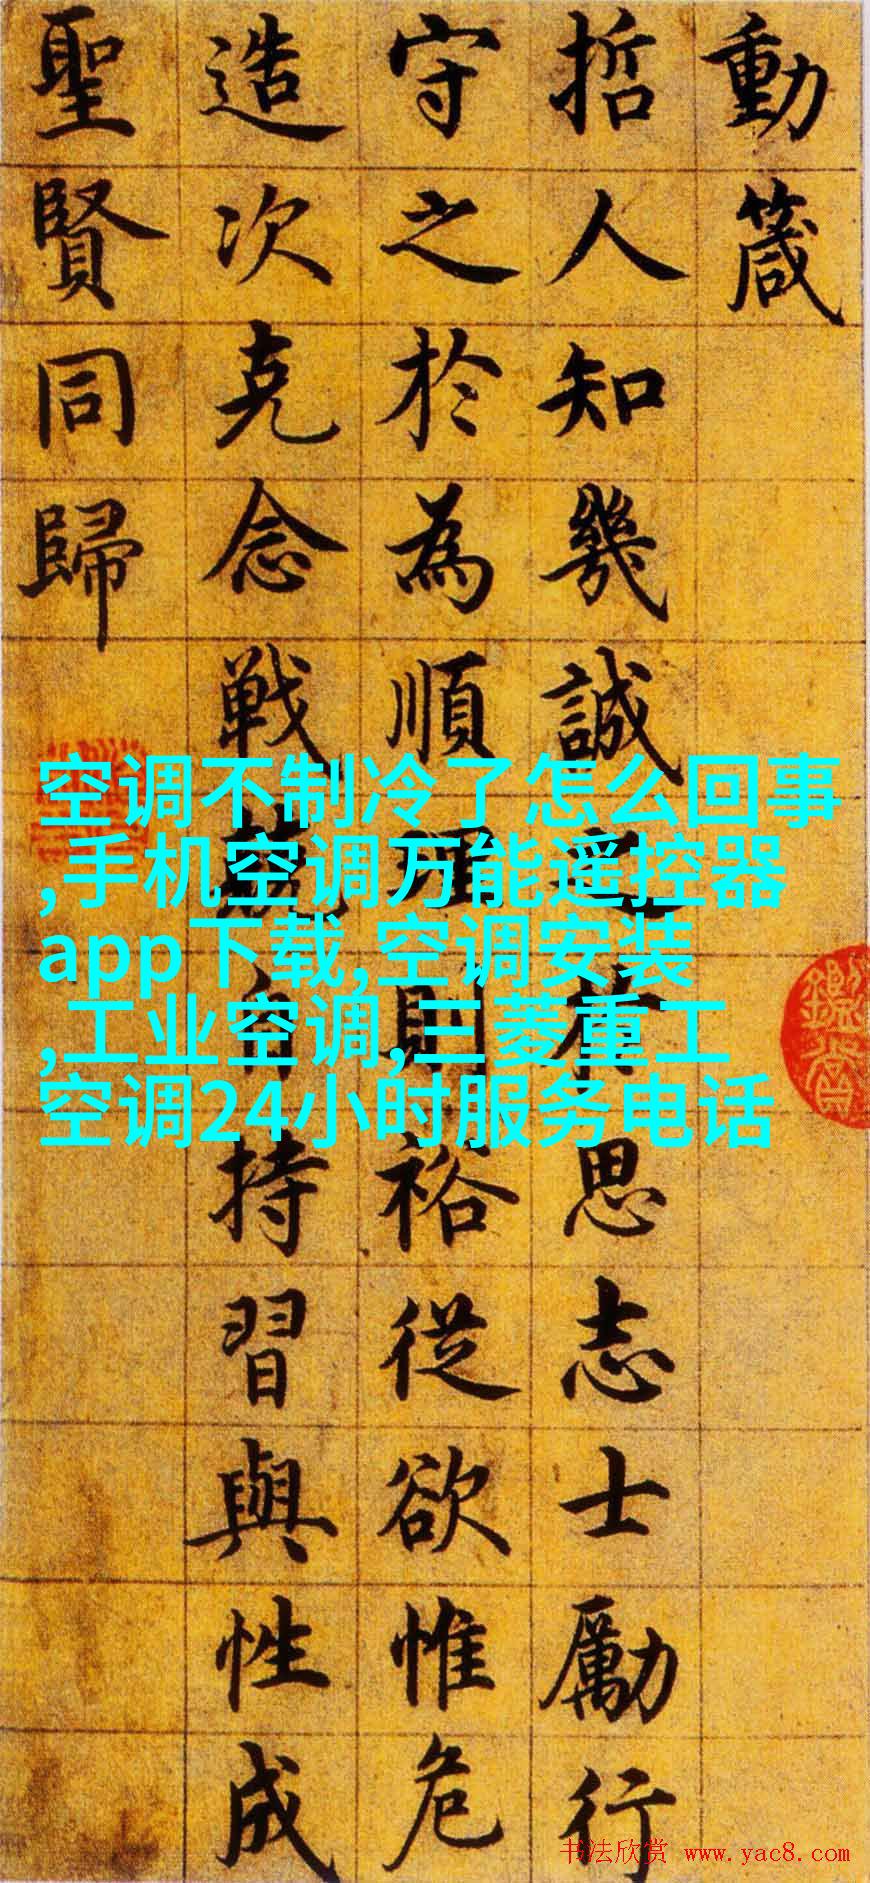 動箴
哲人知幾誠之於思志士勵行
守之於為順理則裕從欲惟危
造次克念戦兢自持習與性成
聖賢同歸
空调不制冷了怎么回事
,手机空调万能遥控器
app下载,空调安装
,工业空调,三菱重工
空调24小时服务电话
书法欣赏 www.yac8.com